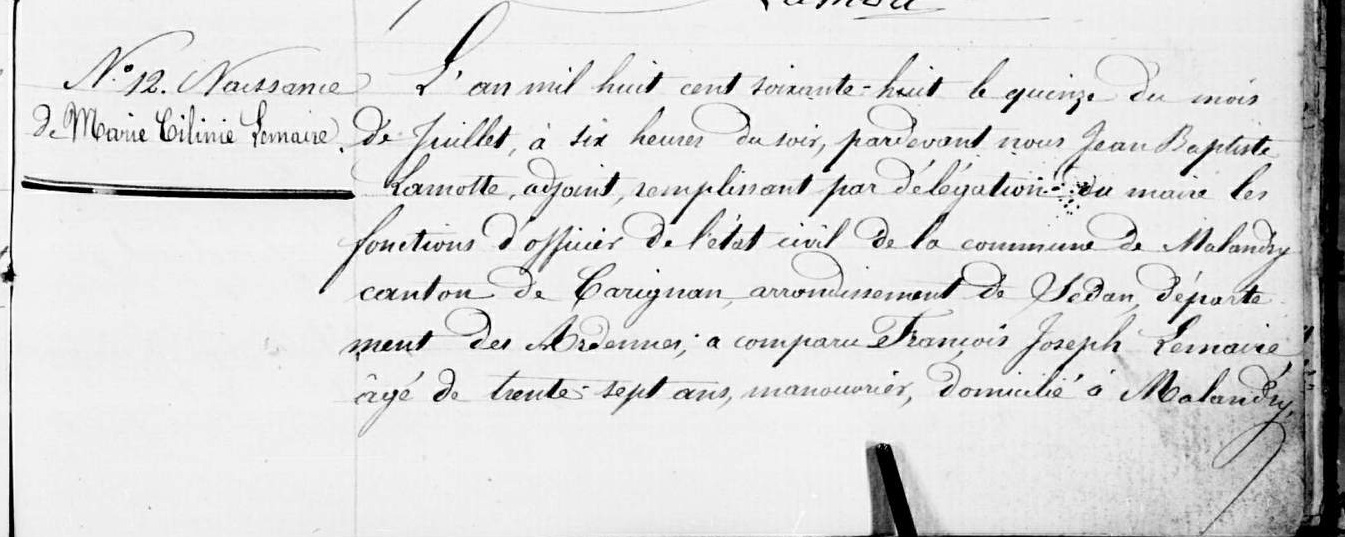 Lamotte
N.° 12. Naissance
de Marie Cilinie Lemaire.
L'an mil huit cent soixante-huit le quinze du mois
de Juillet, à six heures du soir, pardevant nous Jean Baptiste
Lamotte, adjoint, remplissant par délégation du maire les
fonctions d'officier de l'état civil de la commune de Malandry
canton de Carignan, arrondissement de Sedan, départe
ment des Ardennes; a comparu François Joseph Lemaire
âgé de trente-sept ans, manouvrier, domicilié à Malandry,